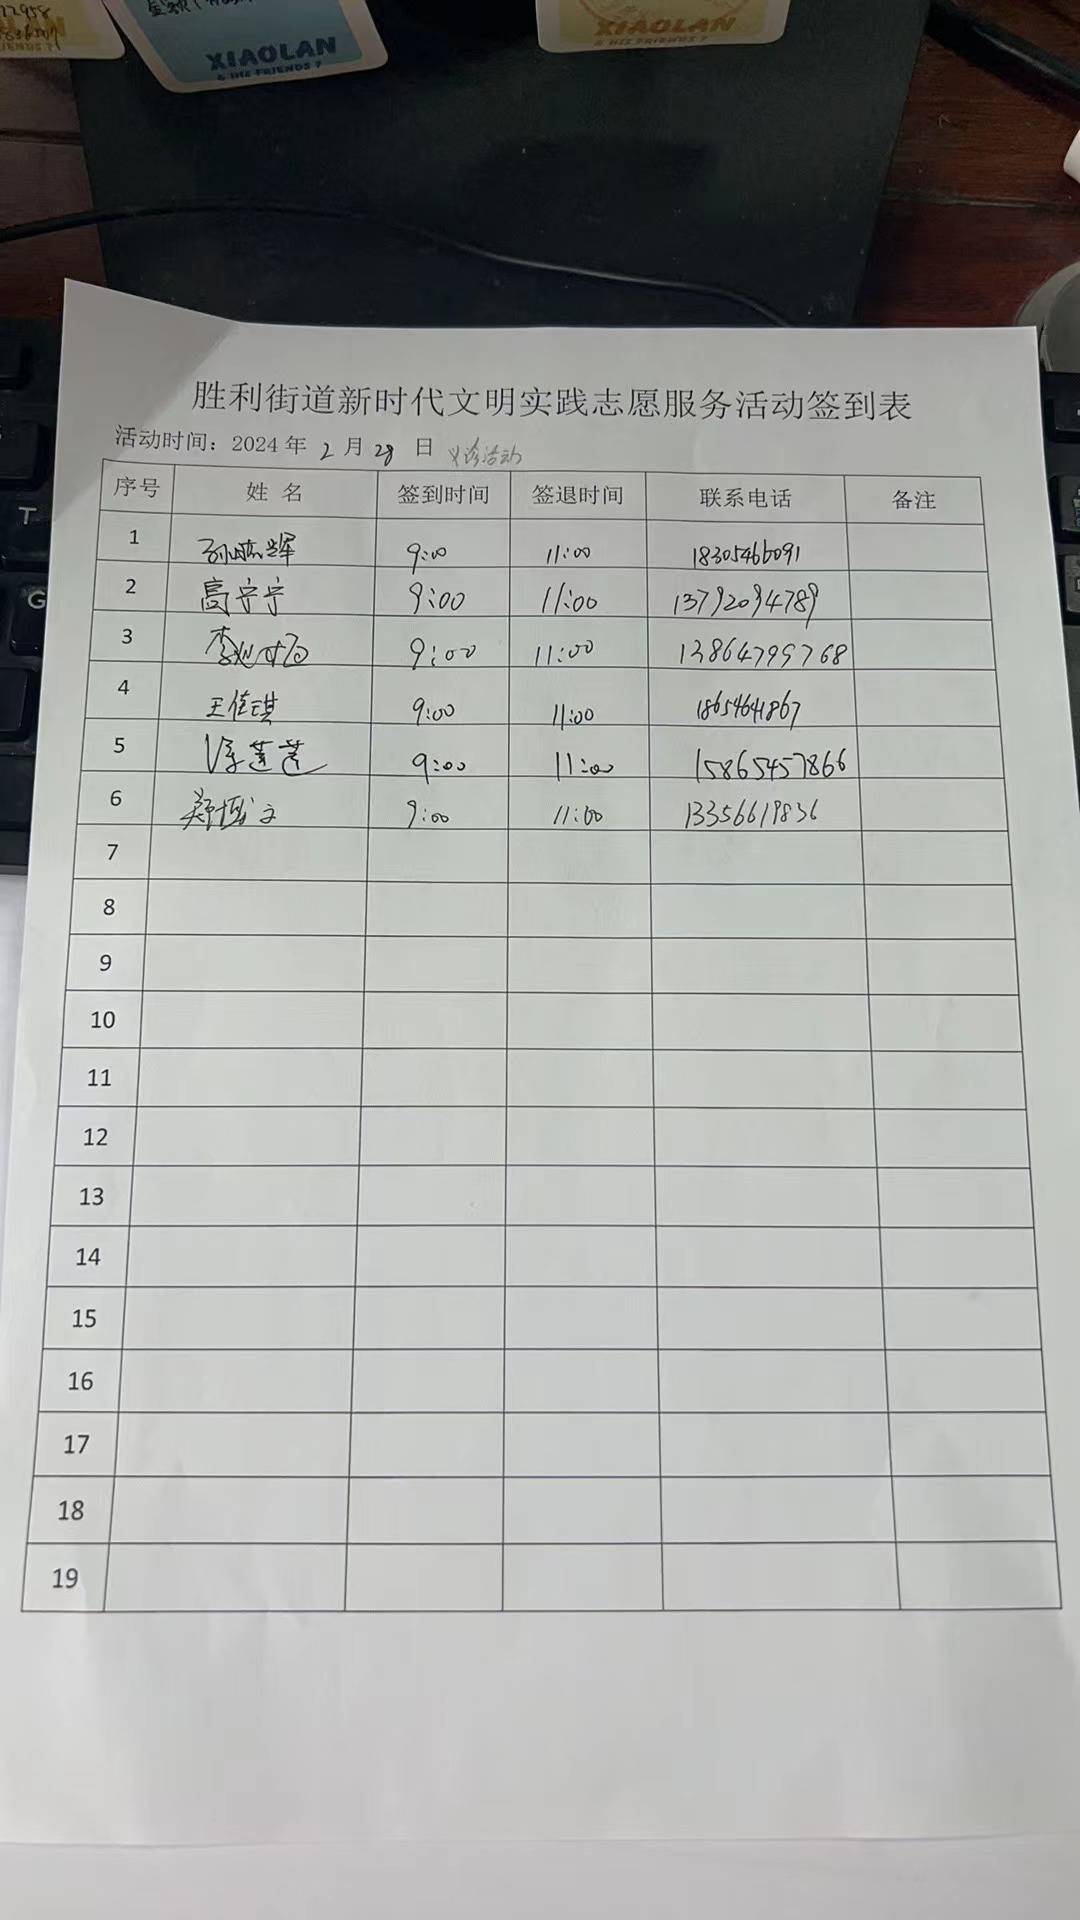 22958
XIAOLAN
& HIS FRIENDS ?
XIAOLAN
& HIS FRIENDS ?
胜利街道新时代文明实践志愿服务活动签到表
活动时间：2024 年 2 月 28 日 义诊活动
序号 姓 名 签到时间 签退时间 联系电话 备注
1 9:00 11:00 18305466091
2 高宁宁 9:00 11:00 13792094789
3 李 9:00 11:00 13864799768
4 王佳琪 9:00 11:00 18654641867
5 莲莲 9:00 11:00 15865457866
6 郑 文 9:00 11:00 13356619836
7
8
9
10
11
12
13
14
15
16
17
18
19
T
G